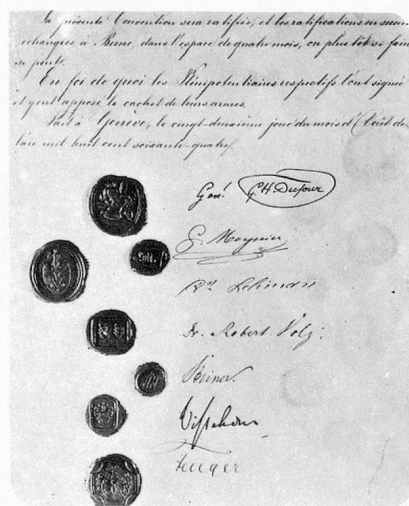 La présente Convention sera ratifiée, et les ratifications en seront
échangées à Berne, dans l'espace de quatre mois, ou plus tôt si faire
se peut.
En foi de quoi les Plénipotentiaires respectifs l'ont signée
et y ont apposé le cachet de leurs armes.
Fait à Genève, le vingt-deuxième jour du mois d'Août de
l'an mil huit cent soixante-quatre.
Genl. GH. Dufour
G. Moynier
Dr Lehmann
Dr. Robert Volz.
Steiner.
Visschers